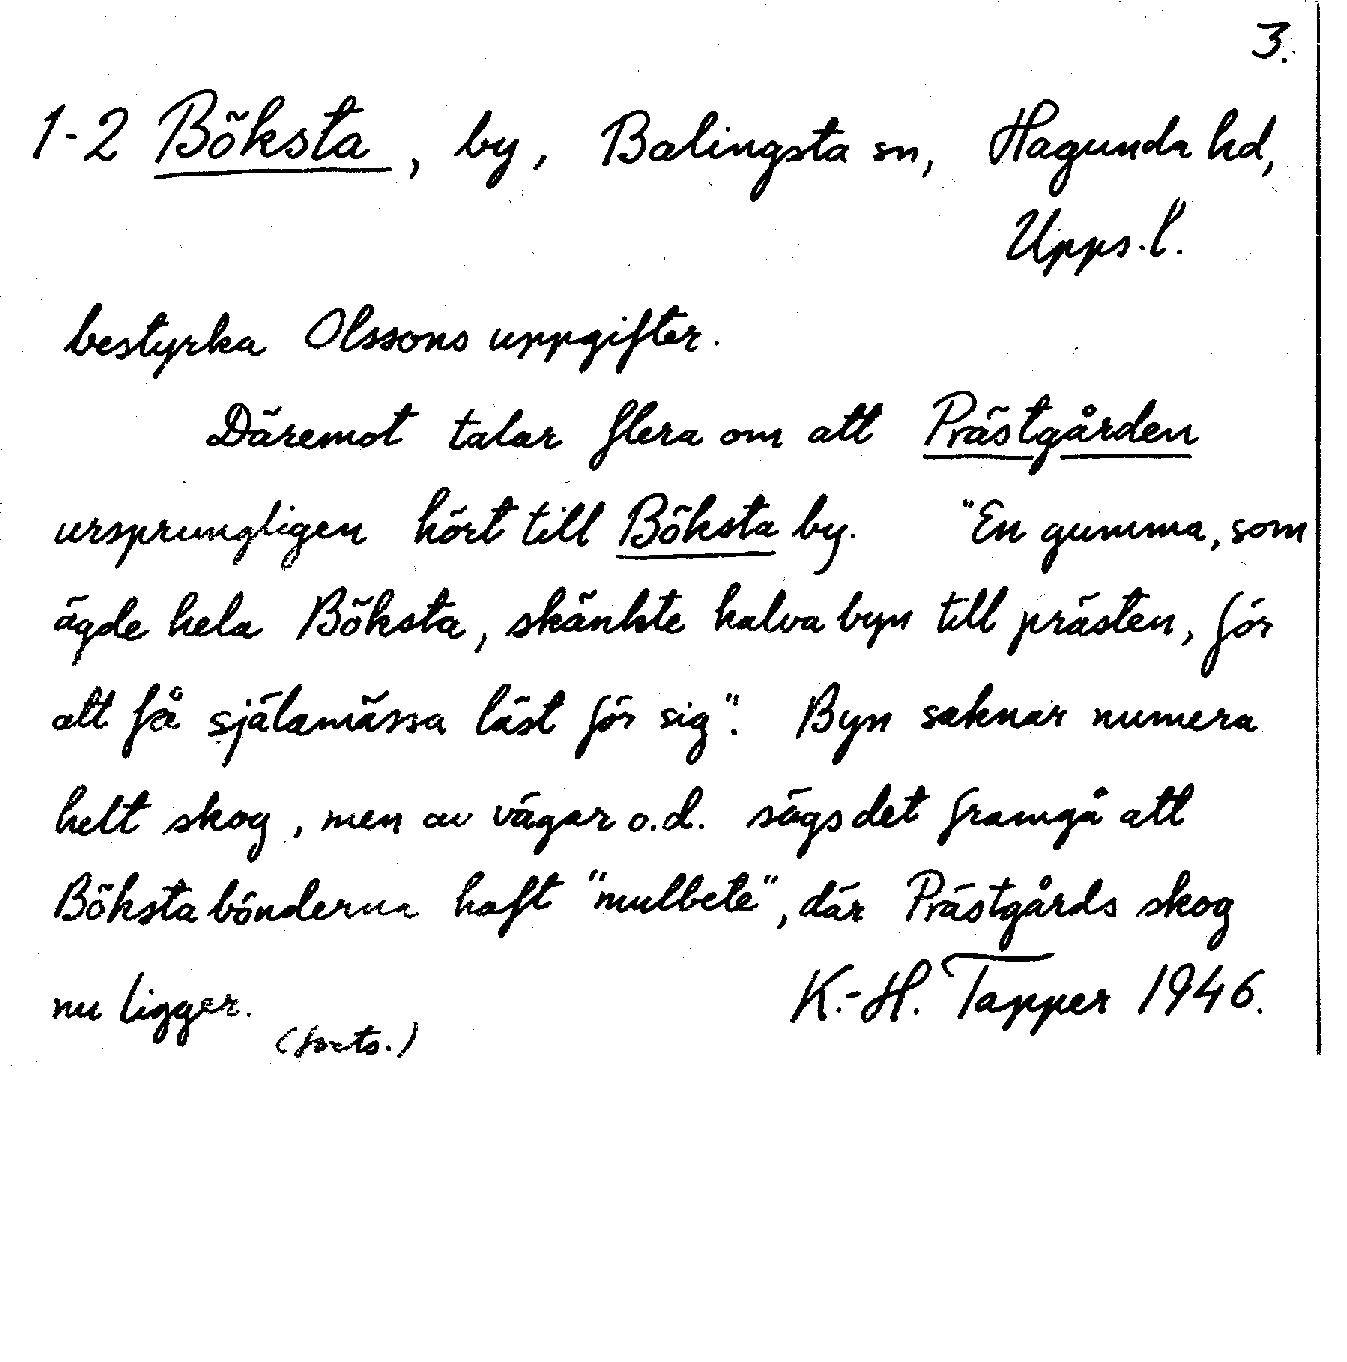 3.
1-2 Böksta, by, Balingsta sn, Hagunda hd,
Upps. l.
bestyrka Olssons uppgifter.
Däremot talar flera om att Prästgården
ursprungligen hört till Böksta by. "En gumma, som
ägde hela Böksta, skänkte halva byn till prästen, för
att få själamässa läst för sig". Byn saknar numera
helt skog, men av vägar o.d. sägs det framgå att
Böksta bönderna haft "mulbete", där Prästgårds skog
nu ligger. K.-H. Tapper 1946.
(forts.)